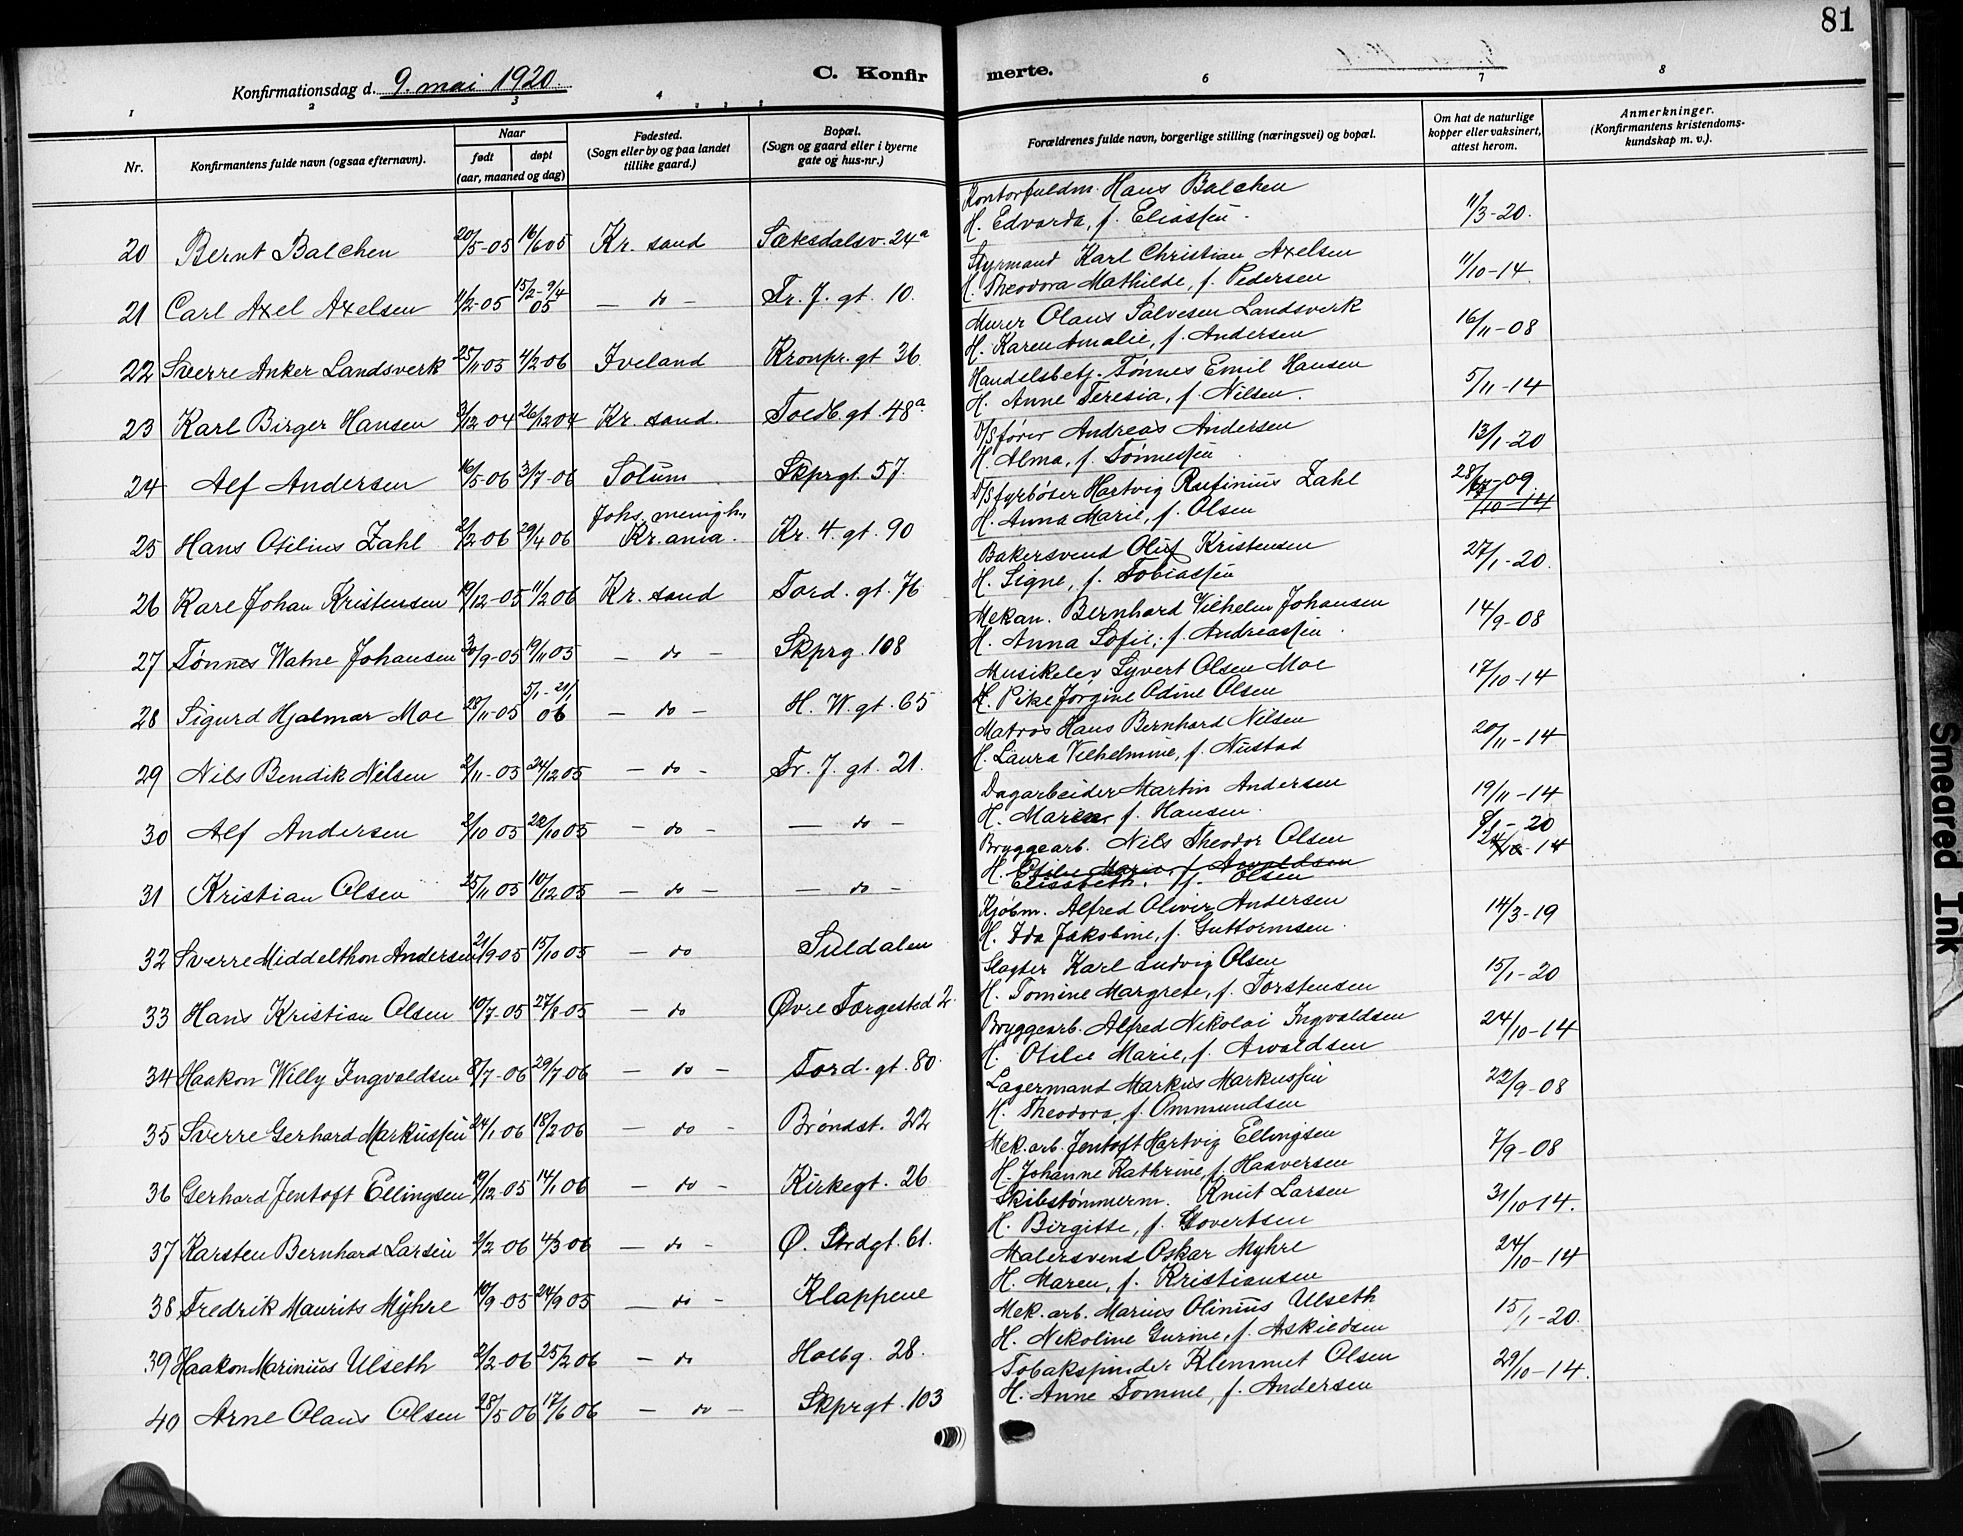 81
Konfirmationsdag d. 9. mai 1920.
C. Konfirmerte.
1 2 3 4 6 7 8
Nr.
Konfirmantens fulde navn (ogsaa efternavn).
Naar
født
døpt
(aar, maaned og dag)
Fødested.
(Sogn eller by og paa landet
tillike gaard.)
Bopæl.
(Sogn og gaard eller i byerne
gate og hus-nr.)
Forældrenes fulde navn, borgerlige stilling (næringsvei) og bopæl.
Om hat de naturlige
kopper eller vaksinert,
attest herom.
Anmerkninger.
(Konfirmantens kristendoms-
kundskap m. v.).
Kontorfuldm. Hans Balchen
20 Bernt Balchen 20/5-05 16/6 05 Kr. sand Sætesdalsv. 24a H. Edvarda, f. Eliassen. 11/3-20.
Styrmand Karl Christian Axelsen
21 Carl Axel Axelsen 4/2-05 15/2-9/4 05 — do — Fr. 7. gt. 10. H. Theodora Mathilde, f. Pedersen 11/10-14.
Murer Olaus Salvesen Landsverk
22 Sverre Anker Landsverk 25/11 05 4/2 06 Iveland Kronpr. gt 36 H. Karen Amalie, f. Andersen 16/11-08
Handelsbetj. Tønnes Emil Hansen
23 Karl Birger Hansen 3/12-04 26/12 04 Kr. sand. Toldb. gt. 48a. H. Anne Teresia, f. Nilsen. 5/11-14
D/S fører Andreas Andersen
24 Alf Andersen 16/5-06 3/7-06 Solum Skprgt. 57. H. Alma, f. Tønnessen 13/1-20
D/S fyrbøter Hartvig Rufinius Zahl
25 Hans Otelius Zahl 2/2-06 29/4 06 Johs. menigh. Kr.ania. Kr. 4. gt. 90 H. Anna Marie, f. Olsen 28/-09 /10-14
Bakersvend Oluf Kristensen
26 Kare Johan Kristensen 19/12-05 11/2 06 Kr. sand Tord. gt. 76 H. Signe, f. Tobiassen 27/1-20.
Mekan. Bernhard Vilhelm Johansen
27 Tønnes Watne Johansen 30/9-05 19/11 05 — do — Skprg. 108 H. Anna Sofie, f. Andreassen. 14/9-08
Musikelev Syvert Olsen Moe
28 Sigurd Hjalmar Moe 28/11-05 5/1-21/1 06 — do — H. W. gt. 65 H. Pike Jørgine Odine Olsen 17/10-14
Matros Hans Bernhard Nilsen
29 Nils Bendik Nilsen 2/11-05 24/12 05 — do — Fr. 7. gt. 21. H. Laura Vilhelmine, f. Nustad 20/11-14
Dagarbeider Martin Andersen
30 Alf Andersen 2/10 05 22/10 05 — do — — do — H. Maren f. Hansen. 19/11-14
Bryggearb. Nils Theodor Olsen
31 Kristian Olsen 25/11 05 10/12 05 — do — — do — H. Otilie Marie, f. Arvaldsen -20
Elisabeth. f. Olsen 24/10-14
Kjøbm. Alfred Oliver Andersen
32 Sverre Middelthon Andersen 21/9 05 15/10 05 — do Suldalen H. Ida Jakobine, f. Guttormsen. 14/3-19
Slagter Karl Ludvig Olsen
33 Hans Kristian Olsen 10/7-05 27/8-05 — do Øvre Torgested 2. H. Tomine Margrete, f. Torstensen 15/1-20
Bryggearb. Alfred Nikolai Ingvaldsen
34 Haakon Willy Ingvaldsen 8/7-06 29/7-06 — do — Tord. gt. 80. H. Otilie Marie, f. Arvaldsen 24/10-14
Lagermand Markus Markussen
35 Sverre Gerhard Markussen 24/1 06 18/2 06 — do — Brøndst. 22 H. Theodora, f. Ommundsen 22/9-08
Mek. arb. Jentoft Hartvig Ellingsen
36 Gerhard Jentoft Ellingsen 19/12-05 14/1 06 — do — Kirkegt. 26 H. Johanne Kathrine, f. Haaversen 7/9-08
Skibstømmerm. Knut Larsen
37 Karsten Bernhard Larsen 2/2 06 4/3 06 — do — Ø. Strdgt. 61. H. Birgitte, f. Govertsen 31/10 14.
Malersvend Oskar Myhre
38 Fredrik Maurits Myhre 10/9-05 24/9 05 — do — Klappene H. Maren, f. Kristiansen 24/10-14
Mek. arb. Marius Olinius Ulseth
39 Haakon Marinius Ulseth 2/2-06 25/2 06 — do Holbg. 28. H. Nikoline Gurine, f. Askildsen 15/1-20.
Tobakspinder Klemmet Olsen
40 Arne Olaus Olsen 28/5 06 17/6 06 — do — Skprgt. 103 H. Anne Tomine, f. Andersen 29/10-14.
Smeared Ink